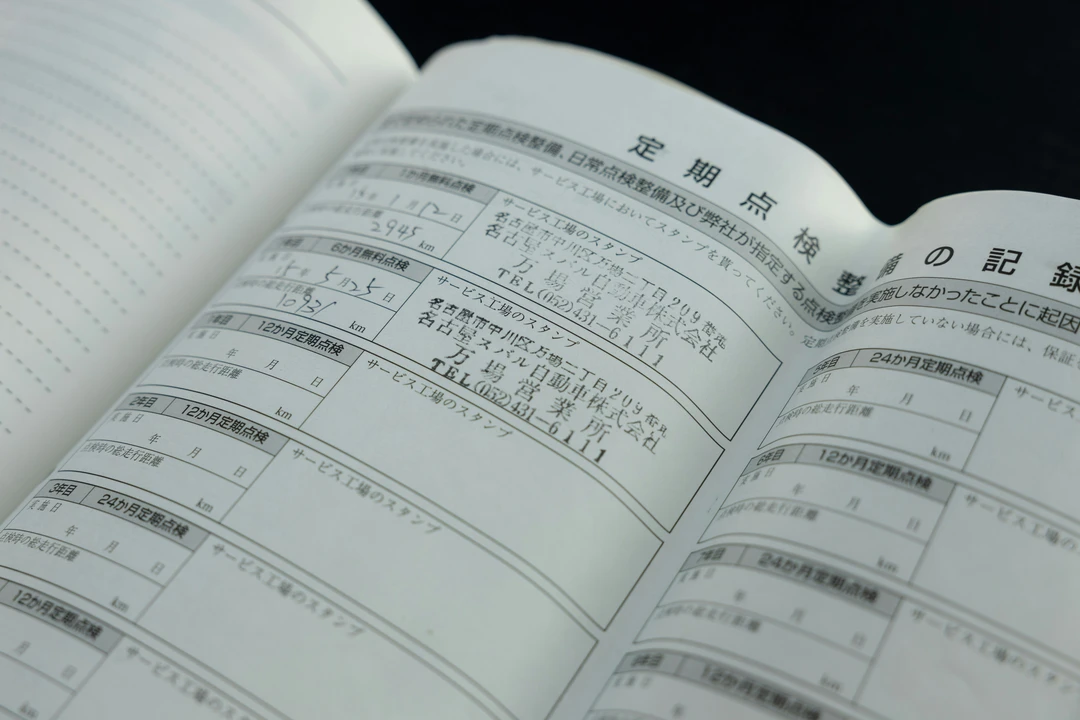 定期点検整
定期点検整備、日常点検整備及び弊社が指定する点検整
した場合には、サービス工場においてスタンプを貰ってください。
1か月無料点検
サービス工場のスタンプ
15年1月12日
総走行距離
2945 km
名古屋市中川区万場二丁目209番地
名古屋スバル自動車株式会社
万場営業所
TEL(052)431-6111
6か月無料点検
サービス工場のスタンプ
15年5月25日
総走行距離
km
名古屋市中川区万場二丁目209番地
名古屋スバル自動車株式会社
万場営業所
TEL(052)431-6111
12か月定期点検
サービス工場のスタンプ
年 月 日
点検時の総走行距離
km
2年目 12か月定期点検
サービス工場のスタンプ
実施日
年 月 日
点検時の総走行距離
km
3年目 24か月定期点検
サービス工場のスタンプ
実施日
年 月 日
点検時の総走行距離
km
12か月定期点検
サービス工場のスタンプ
月 日
備の記録
実施しなかったことに起因
整備を実施していない場合には、保証
24か月定期点検
サービス
年 月 日
点検時の総走行距離
km
6年目 12か月定期点検
サービス工場の
実施日
年 月 日
点検時の総走行距離
km
7年目 24か月定期点検
サービス工場のスタン
実施日
年 月 日
点検時の総走行距離
km
12か月定期点検
サービス工場のスタン